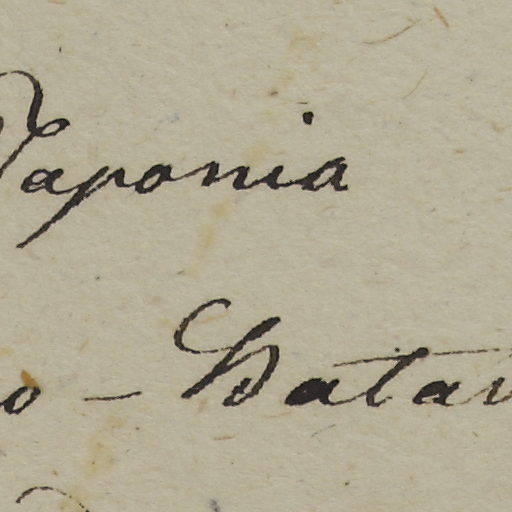 Japonia
o - Batav